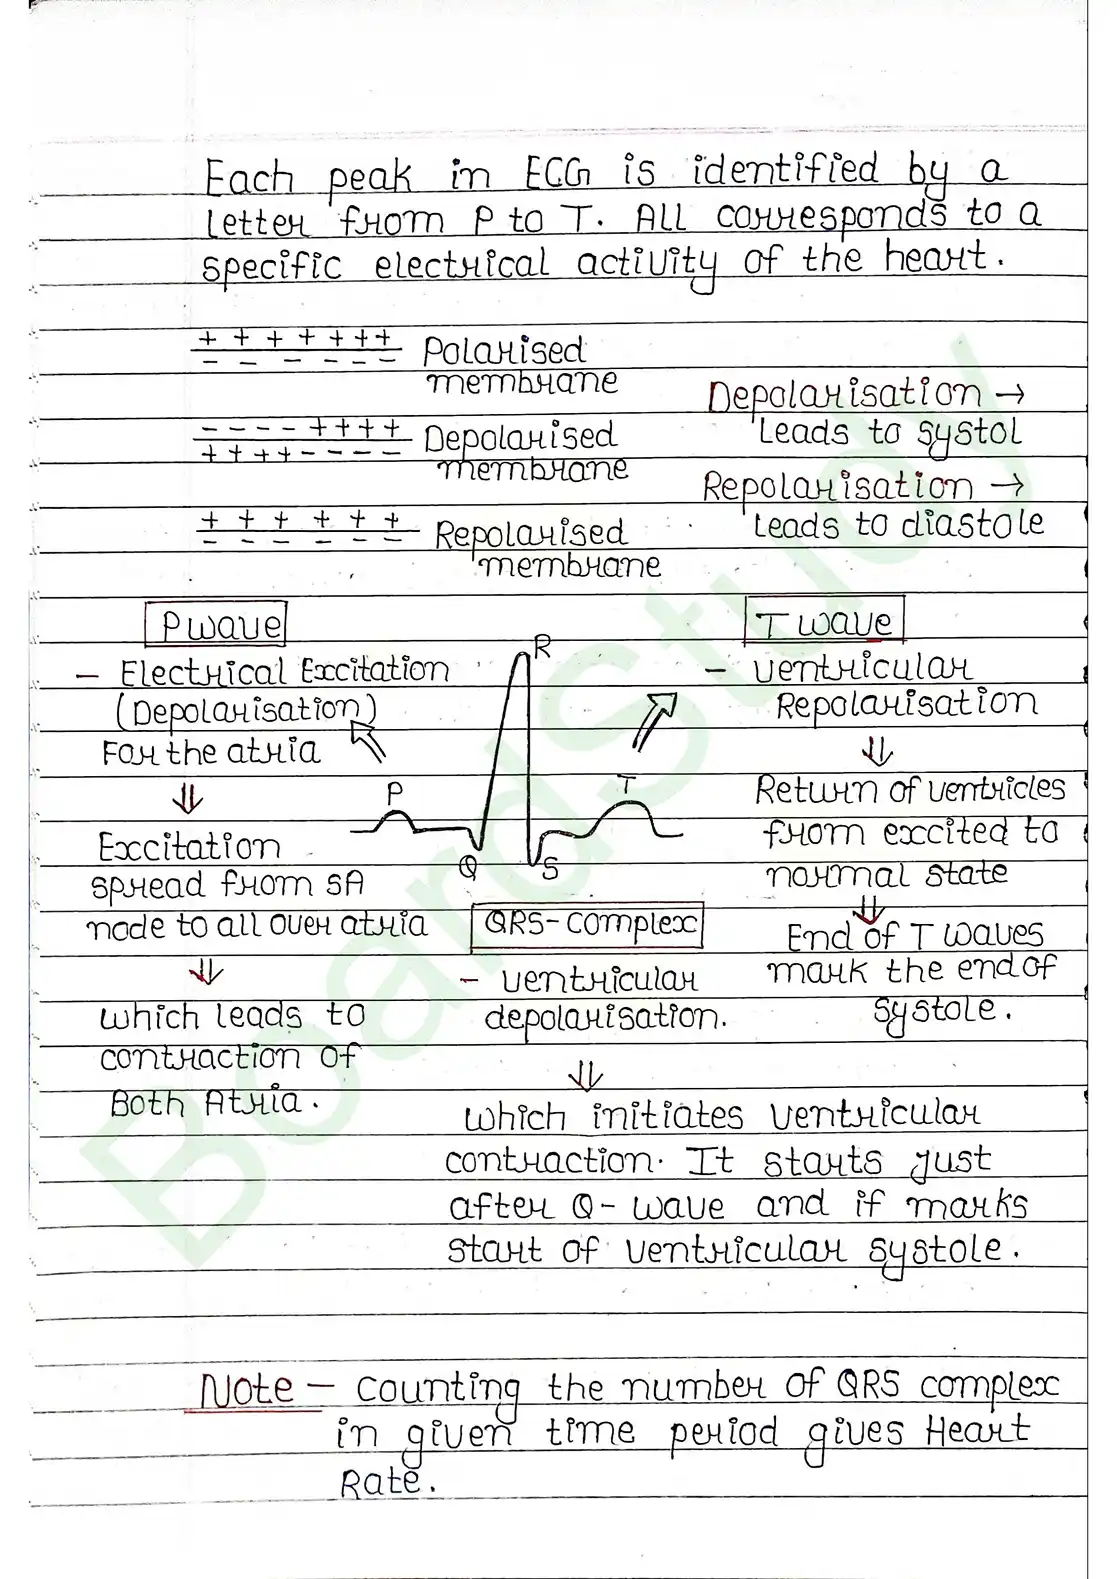 Each peak in ECG is identified by a
letter from P to T. All corresponds to a
specific electrical activity of the heart.
+ + + + + + + Polarised
– – – – – – – membrane
– – – – + + + + Depolarised
+ + + + – – – – membrane
+ + + + + + Repolarised
– – – – – – membrane
Depolarisation →
Leads to systol
Repolarisation →
Leads to diastole
P wave
– Electrical Excitation
(Depolarisation)
For the atria
⇓
Excitation
spread from SA
node to all over atria
⇓
which leads to
contraction of
Both Atria.
R
P
T
Q
S
QRS-complex
– ventricular
depolarisation.
⇓
which initiates ventricular
contraction. It starts just
after Q-wave and if marks
start of ventricular systole.
T wave
– ventricular
Repolarisation
⇓
Return of ventricles
from excited to
normal state
⇓
End of T waves
mark the end of
systole.
Note – counting the number of QRS complex
in given time period gives Heart
Rate.
BoardStudy